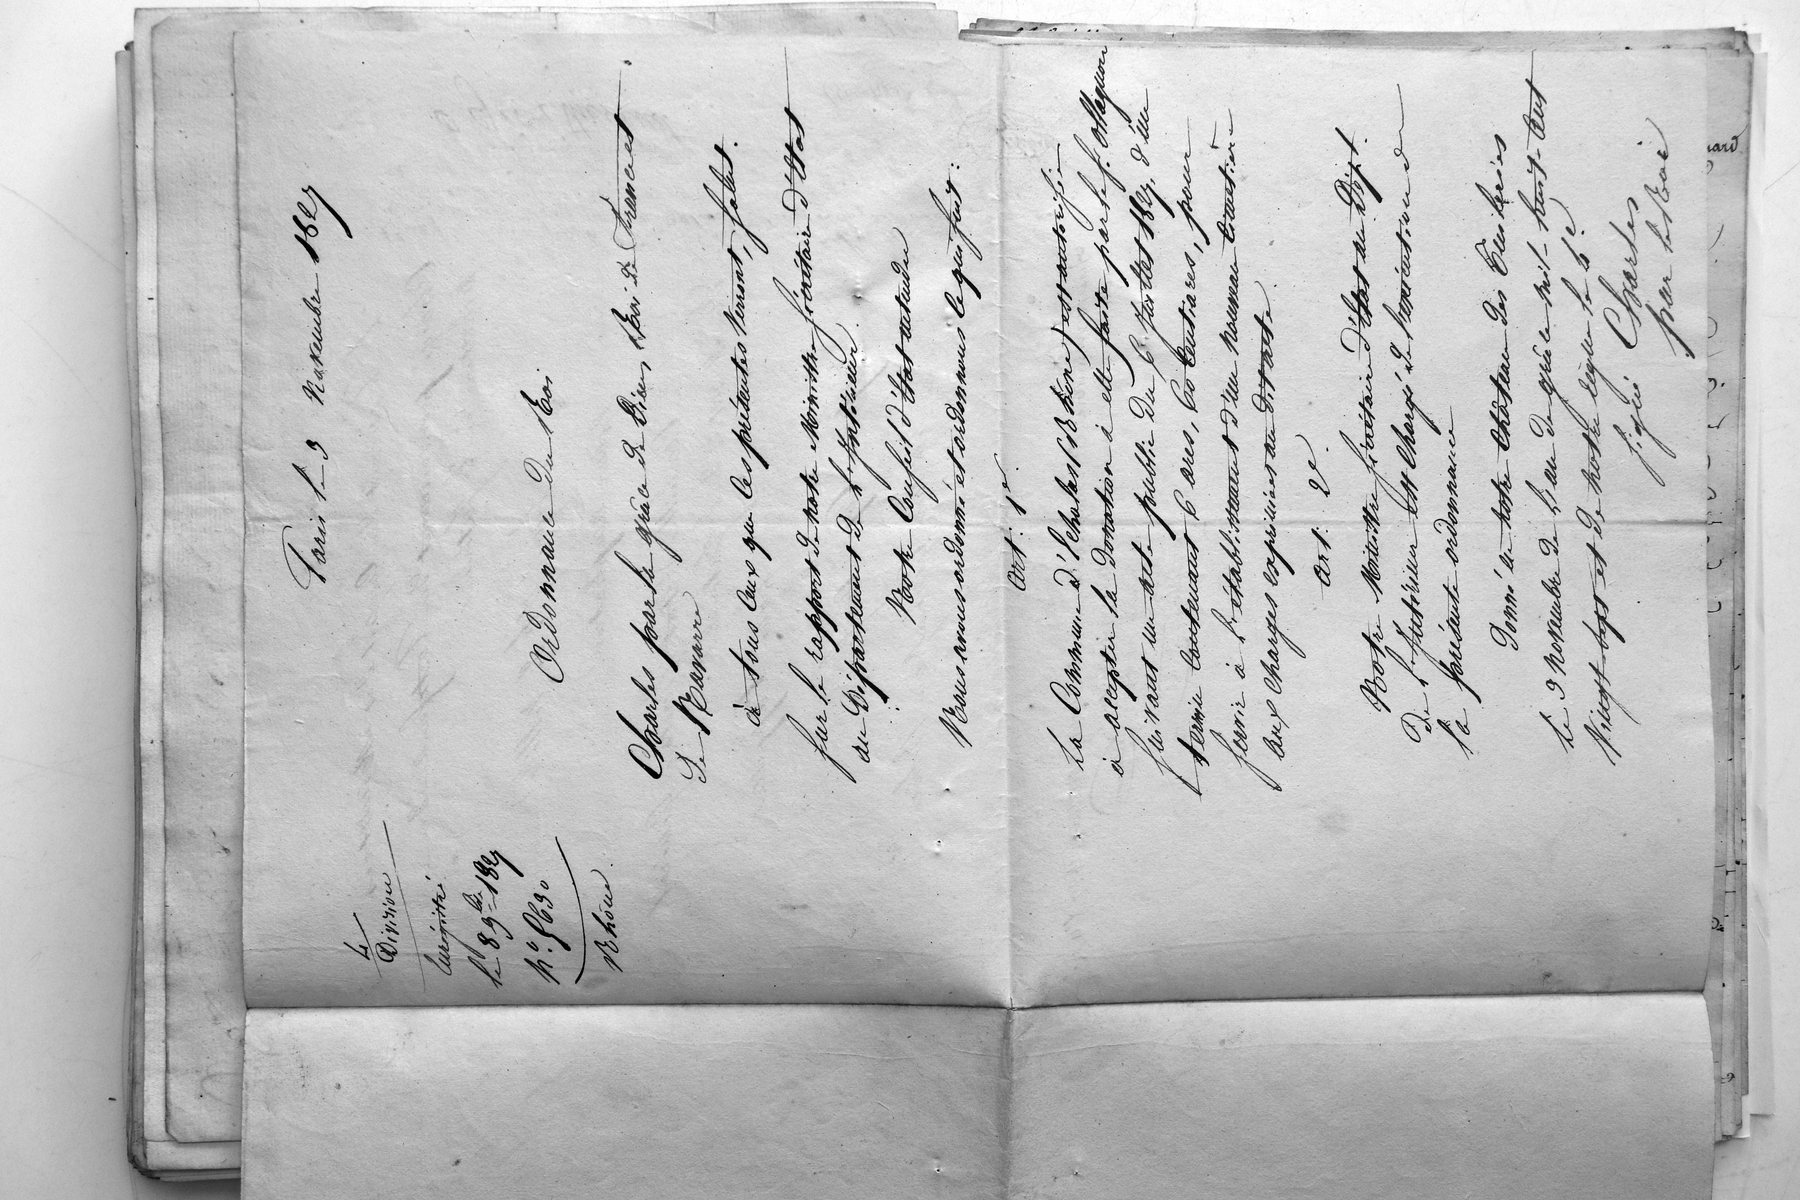 Paris le 3 Novembre 1827
4e
Division
Enregistré
le 8 9bre 1827
N° 5630
Rhône
Ordonnance du Roi
Charles par la grâce de Dieu, Roi de France et
de Navarre
à tous ceux que ces présentes verront, salut.
Sur le rapport de notre Ministre Secrétaire d'Etat
au Département de l'Intérieur.
Notre Conseil d'Etat entendu
Nous avons ordonné et ordonnons ce qui suit:
art. 1er
La Commune d'Echalas (Rhône) est autorisée
à accepter la donation à elle faite par le S.
suivant un acte public du 6 Juillet 1827, d'un
terrein contenant 6 ares, 60 Centiares, pour
servir à l'établissement d'un nouveau Cimetière
aux charges exprimées au dit acte.
art. 2e
Notre Ministre Secrétaire d'Etat au Dépt.
de l'Intérieur est Chargé de l'exécution de
la présente ordonnance
Donné en notre Château des Tuileries
le 3 novembre de l'an de grâce mil-huit-Cent
Vingt-sept et de notre règne le 4e
signé Charles
par le Roi